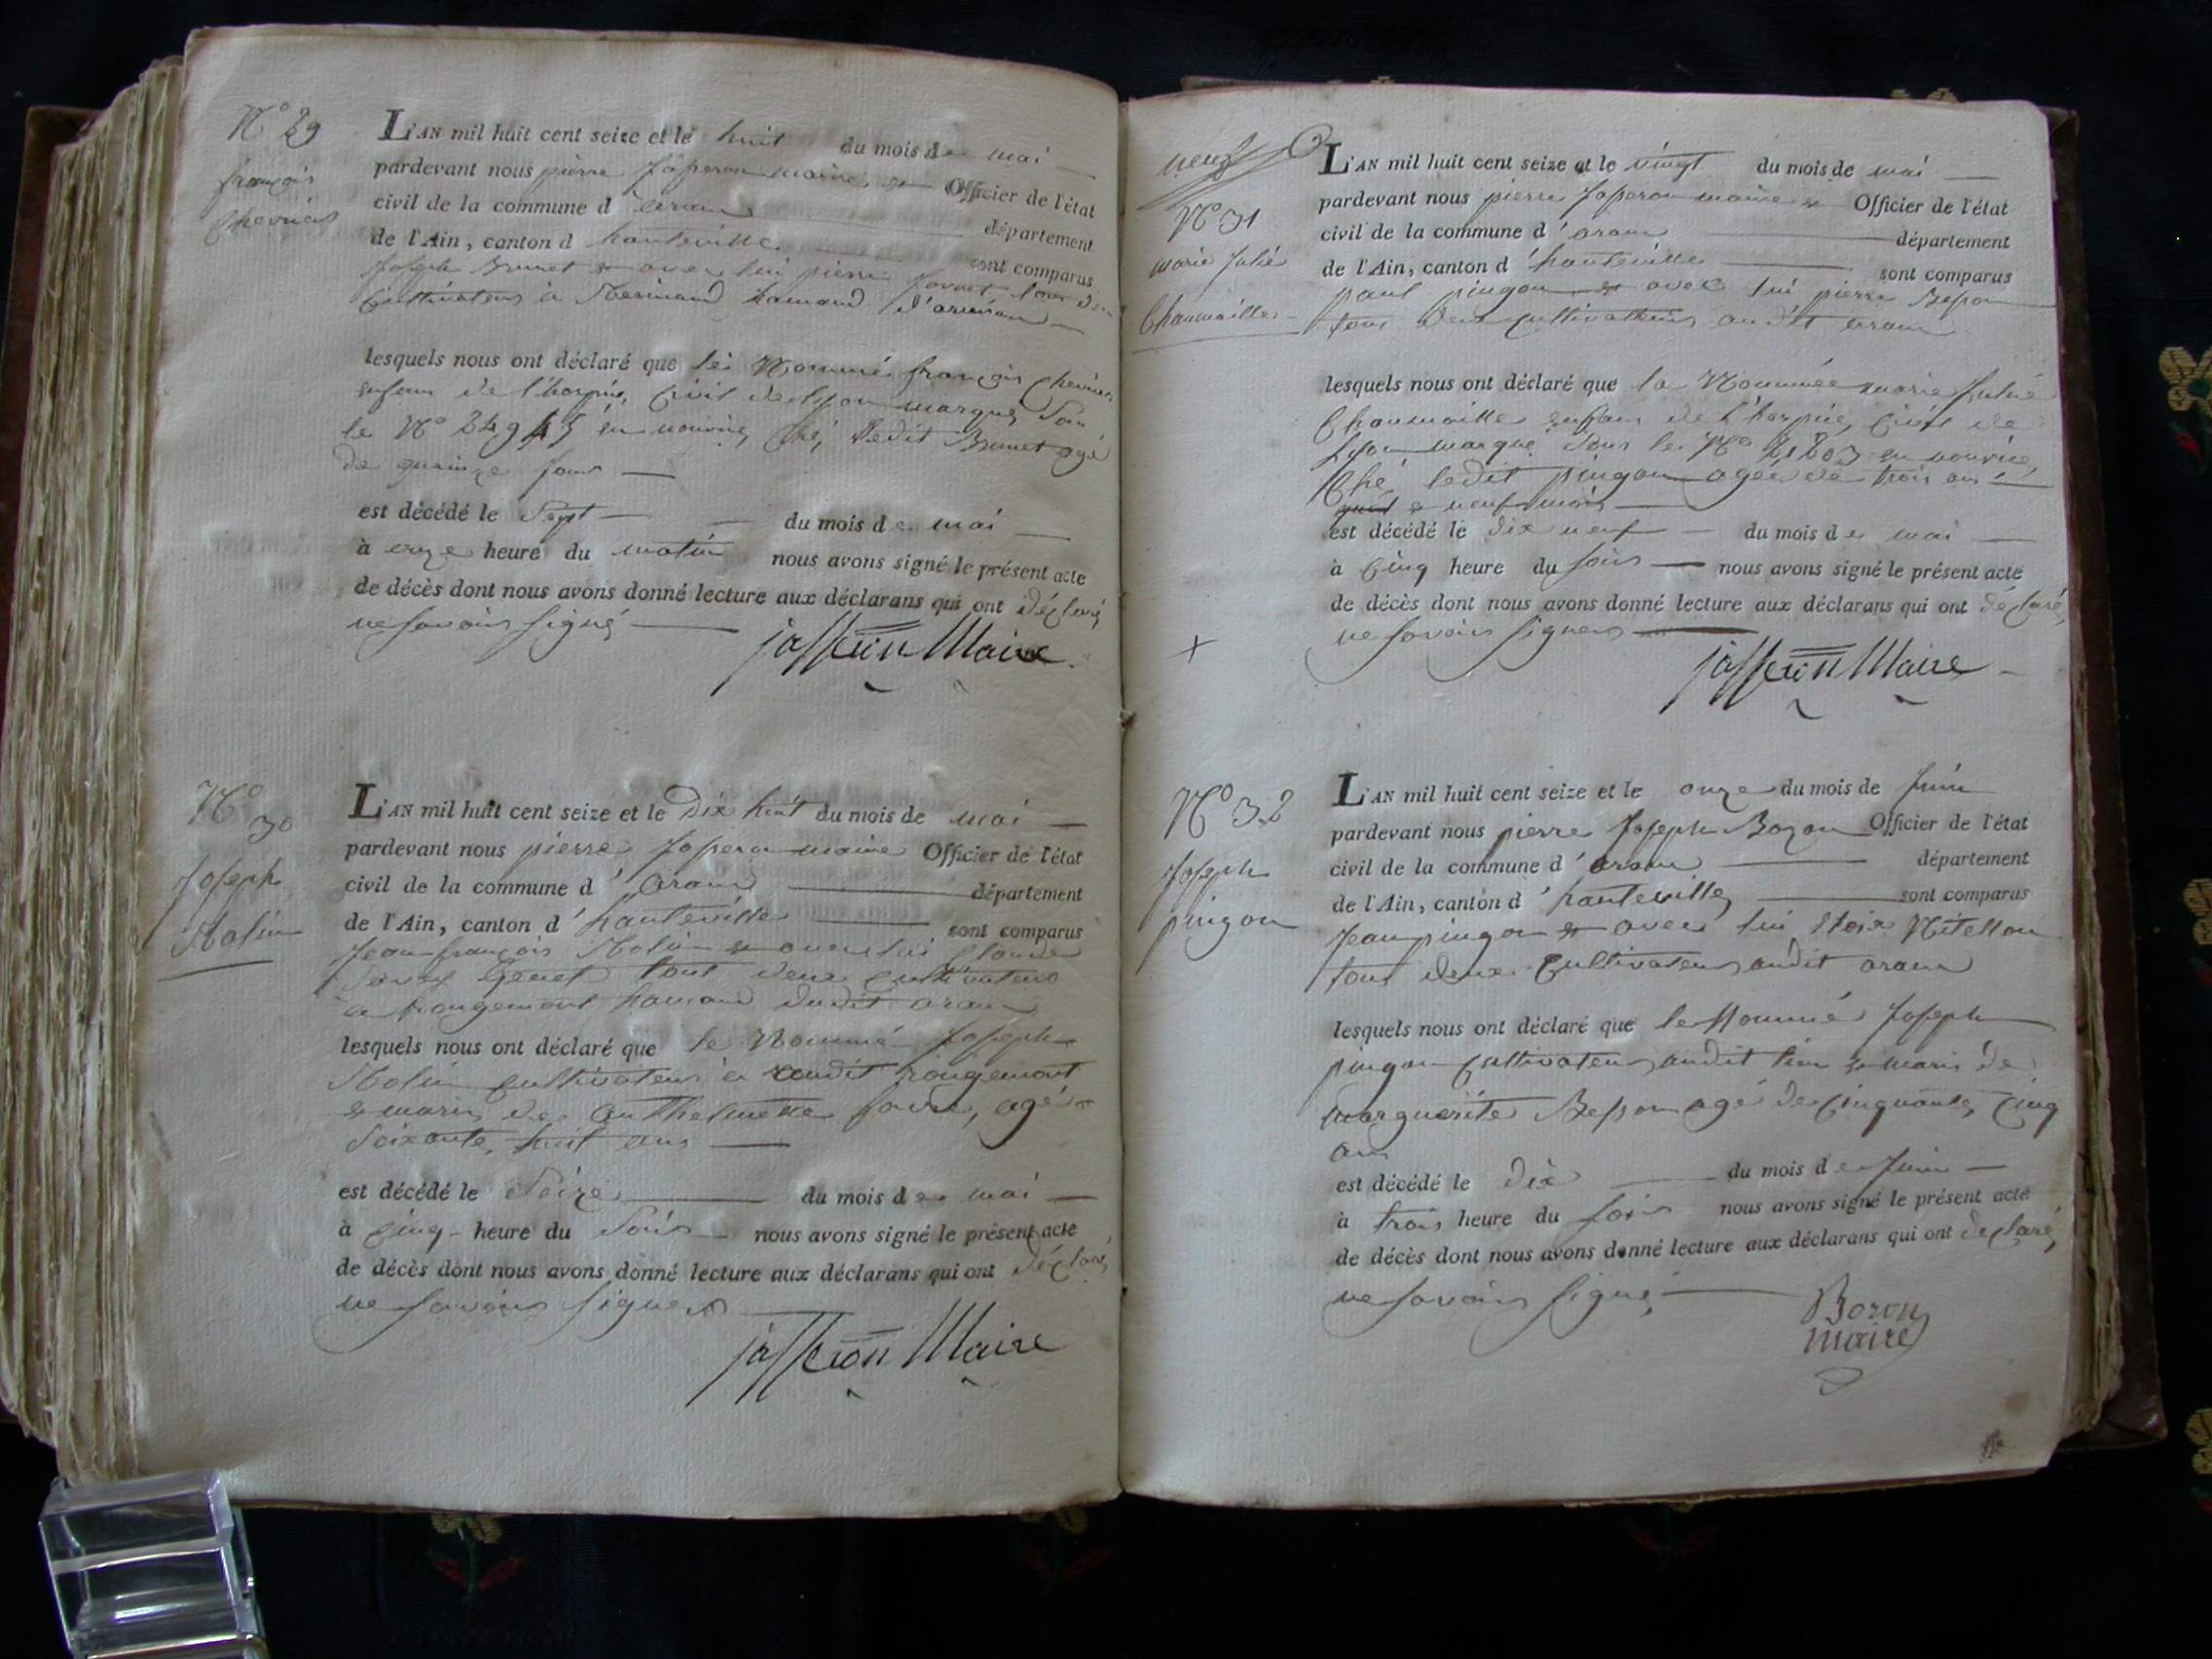 N° 29
françois
Chevrier
L'AN mil huit cent seize et le huit du mois de mai
pardevant nous pierre Jasseron maire et Officier de l'état
civil de la commune d aranc département
de l'Ain, canton d hauteville sont comparus
Joseph Brunet et avec lui pierre tous deux
Cultivateurs à hamaud
lesquels nous ont déclaré que le Nommé françois Chevrier
enfant de l'hospice Civil de Lyon marqué Sous
le N° 24945 en nourrice Ché ledit Brunet agé
de quainze jours
est décédé le Sept du mois de mai
à onze heure du matin nous avons signé le présent acte
de décès dont nous avons donné lecture aux déclarans qui ont déclaré
ne savoir signé
jasseron Maire
N° 30
Joseph
Molin
L'AN mil huit cent seize et le Dix huit du mois de mai
pardevant nous pierre Jasseron maire Officier de l'état
civil de la commune d' aranc département
de l'Ain, canton d' hauteville sont comparus
Jean françois Molin et avec lui Claude
Savey tout deux Cultivateurs
à rougemont hamaud dudit aranc
lesquels nous ont déclaré que le Nommé Joseph
Molin cultivateur à audit rougemont
et maris de Anthelmette favre, agé de
Soixante huit ans
est décédé le Seize du mois de mai
à Cinq heure du Soir nous avons signé le présent acte
de décès dont nous avons donné lecture aux déclarans qui ont déclaré
ne savoir signer
jasseron Maire
neuf
N° 31
marie Julie
Chaumaille
L'AN mil huit cent seize et le vingt du mois de mai
pardevant nous pierre Jasseron maire et Officier de l'état
civil de la commune d' aranc département
de l'Ain, canton d' hauteville sont comparus
paul pingon et avec lui pierre Besson
tous deux cultivateurs audit aranc
lesquels nous ont déclaré que la Nommée marie Julie
Chaumaille enfant de l'hospice Civil de
Lyon marqué Sous le N° 21203 en nourrice
Ché ledit pingon agée de trois ans
et neuf mois
est décédé le dix neuf du mois de mai
à Cinq heure du soir nous avons signé le présent acte
de décès dont nous avons donné lecture aux déclarans qui ont déclaré
ne savoir signer
jasseron Maire
N° 32
Joseph
pingon
L'AN mil huit cent seize et le onze du mois de Juin
pardevant nous pierre Joseph Bozon Officier de l'état
civil de la commune d' aranc département
de l'Ain, canton d' hauteville sont comparus
Jean pingon et avec lui
tous deux Cultivateurs audit aranc
lesquels nous ont déclaré que le Nommé Joseph
pingon Cultivateur audit lieu et maris de
marguerite Besson agé de Cinquante Cinq
ans
est décédé le Dix du mois de Juin
à trois heure du soir nous avons signé le présent acte
de décès dont nous avons donné lecture aux déclarans qui ont declaré
ne savoir signé
Bozon
maire